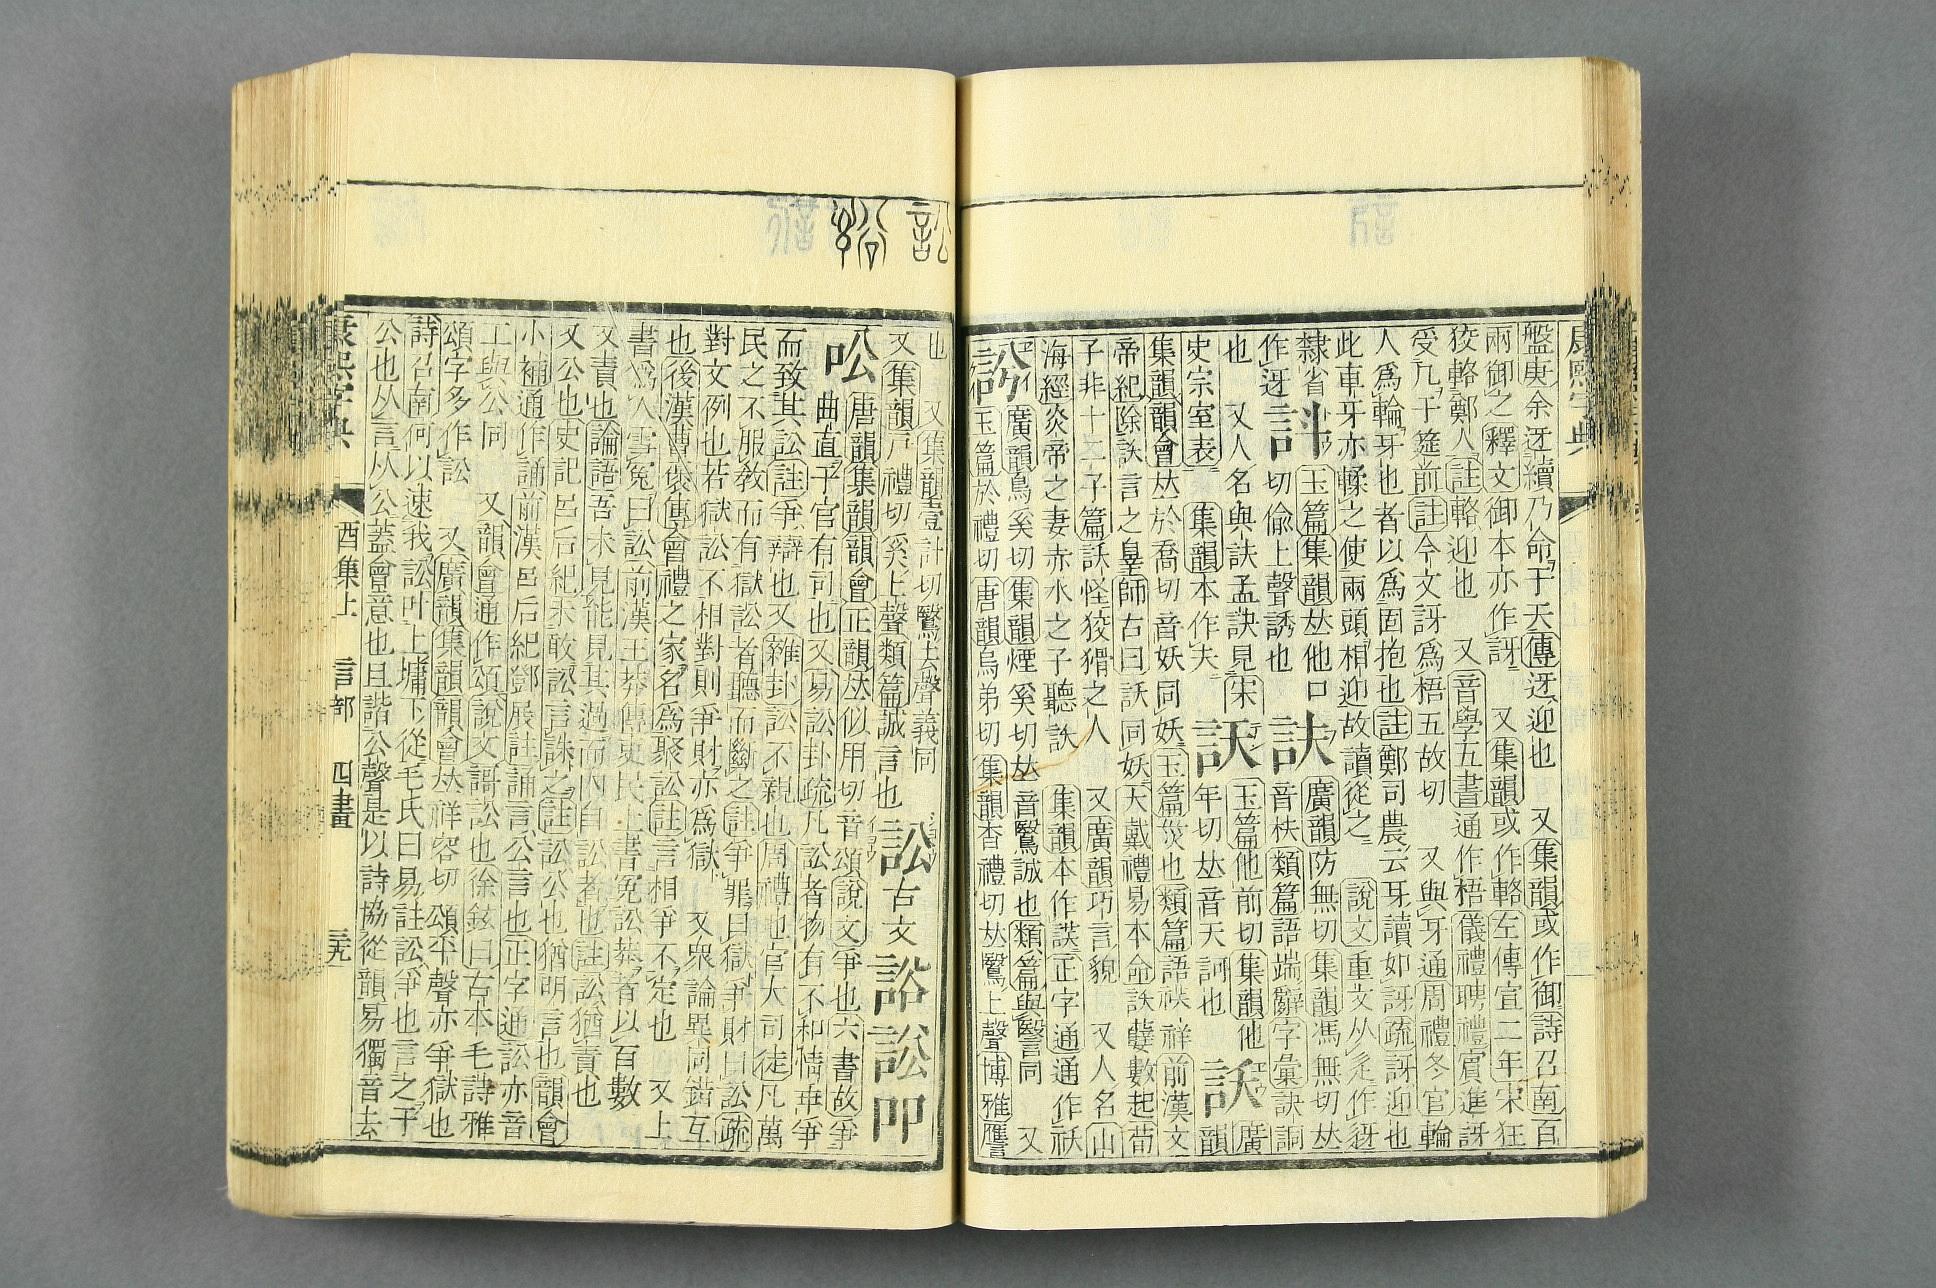 康熙字典
盤庚余迓續乃命于天傳迓迎也　又集韻或作御詩召南百
兩御之釋文御本亦作訝　又集韻或作輅左傳宣二年宋狂
狡輅鄭人註輅迎也　又音學五書通作梧儀禮聘禮賓進訝
受几于筵前註今文訝爲梧五故切　又與牙通周禮冬官輪
人爲輪牙也者以爲固抱也註鄭司農云牙讀如訝疏訝迎也
此車牙亦輮之使兩頭相迎故讀從之　說文重文从辵作迓
隸省作迓
䚵玉篇集韻𠀤他口切偷上聲誘也
訞廣韻防無切集韻馮無切𠀤音枎類篇語端辭字彙訣詞
也　又人名與訣孟訣見宋史宗室表　集韻本作夫
玉篇他前切集韻他年切𠀤音天訶也
訞廣韻集韻韻會𠀤於喬切音妖同妖玉篇災也類篇語祅祥前漢文
帝紀除訞言之辠師古曰訞同妖大戴禮易本命訞孼數起荀
子非十二子篇訞怪狡猾之人　又廣韻巧言貌　又人名山
海經炎帝之妻赤水之子聽訞　集韻本作䛠正字通通作祅
廣韻烏奚切集韻煙奚切𠀤音鷖誠也類篇與䃜言同　又
玉篇於禮切唐韻烏弟切集韻杳禮切𠀤鷖上聲博雅譍
也　又集韻壹計切鷖去聲義同
又集韻戸禮切奚上聲類篇誠言也
訟古文𧧗䛦吅
㕬唐韻集韻韻會正韻𠀤似用切音頌說文爭也六書故爭
曲直于官有司也　又易訟卦疏凡訟者物有不和情乖爭
而致其訟註爭辯也又雜卦訟不親也周禮地官大司徒凡萬
民之不服敎而有獄訟者聽而斷之註爭罪曰獄爭財曰訟疏
對文例也若獄訟不相對則爭財亦爲獄　又衆論異同錯互
也後漢曹褒傳會禮之家名爲聚訟註言相爭不定也　又上
書爲人雪冤曰訟前漢王莽傳吏民上書冤訟莽者以百數
又責也論語吾未見能見其過而內自訟者也註訟猶責也
又公也史記呂后紀未敢訟言誅之註訟公也猶明言也韻會
小補通作誦前漢呂后紀鄧展註誦言公言也正字通訟亦音
工與公同　又韻會通作頌說文謌訟也徐鉉曰古本毛詩雅
頌字多作訟　又廣韻集韻韻會𠀤祥容切頌平聲亦爭獄也
詩召南何以速我訟叶上墉下從毛氏曰易註訟爭也言之于
公也从言从公蓋會意也且諧公聲是以詩協從韻易獨音去
康熙字典　酉集上　言部　四畫　三九